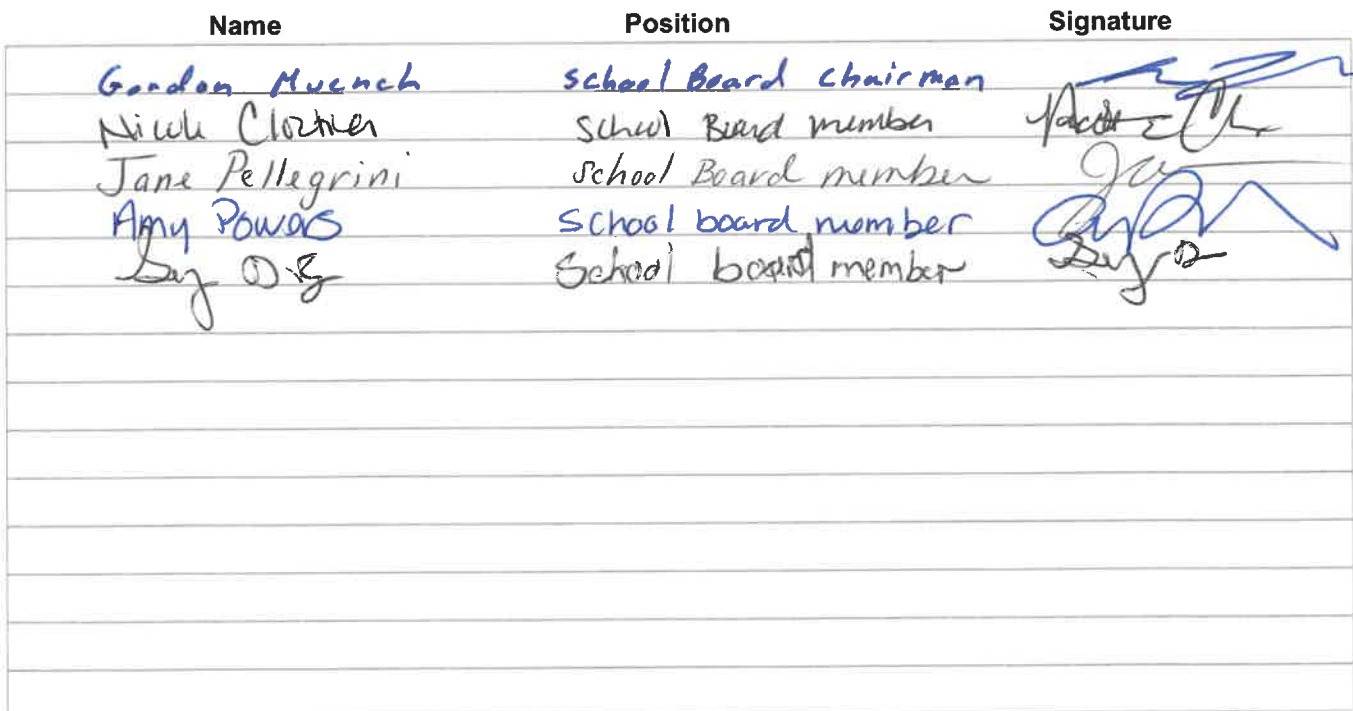 Name Position Signature
Gordon Muench School Board Chairman
Nicole Cloutier School Board member
Jane Pellegrini School Board member
Amy Powers School board member
School board member